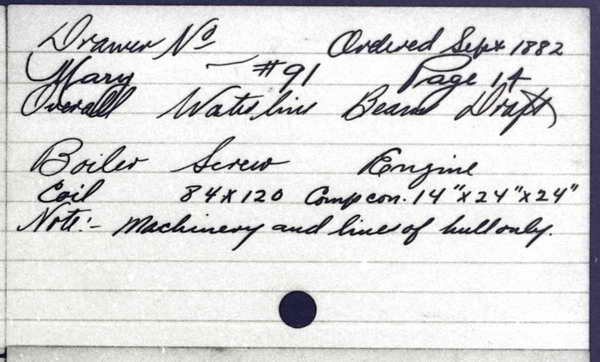 Drawer No Ordered Sept 1882
Mary - #91 Page 14
Overall Waterline Beam Draft
Boiler Screw Engine
Coil 84 x 120 Comp con. 14" x 24" x 24"
Note:- Machinery and lines of hull only.